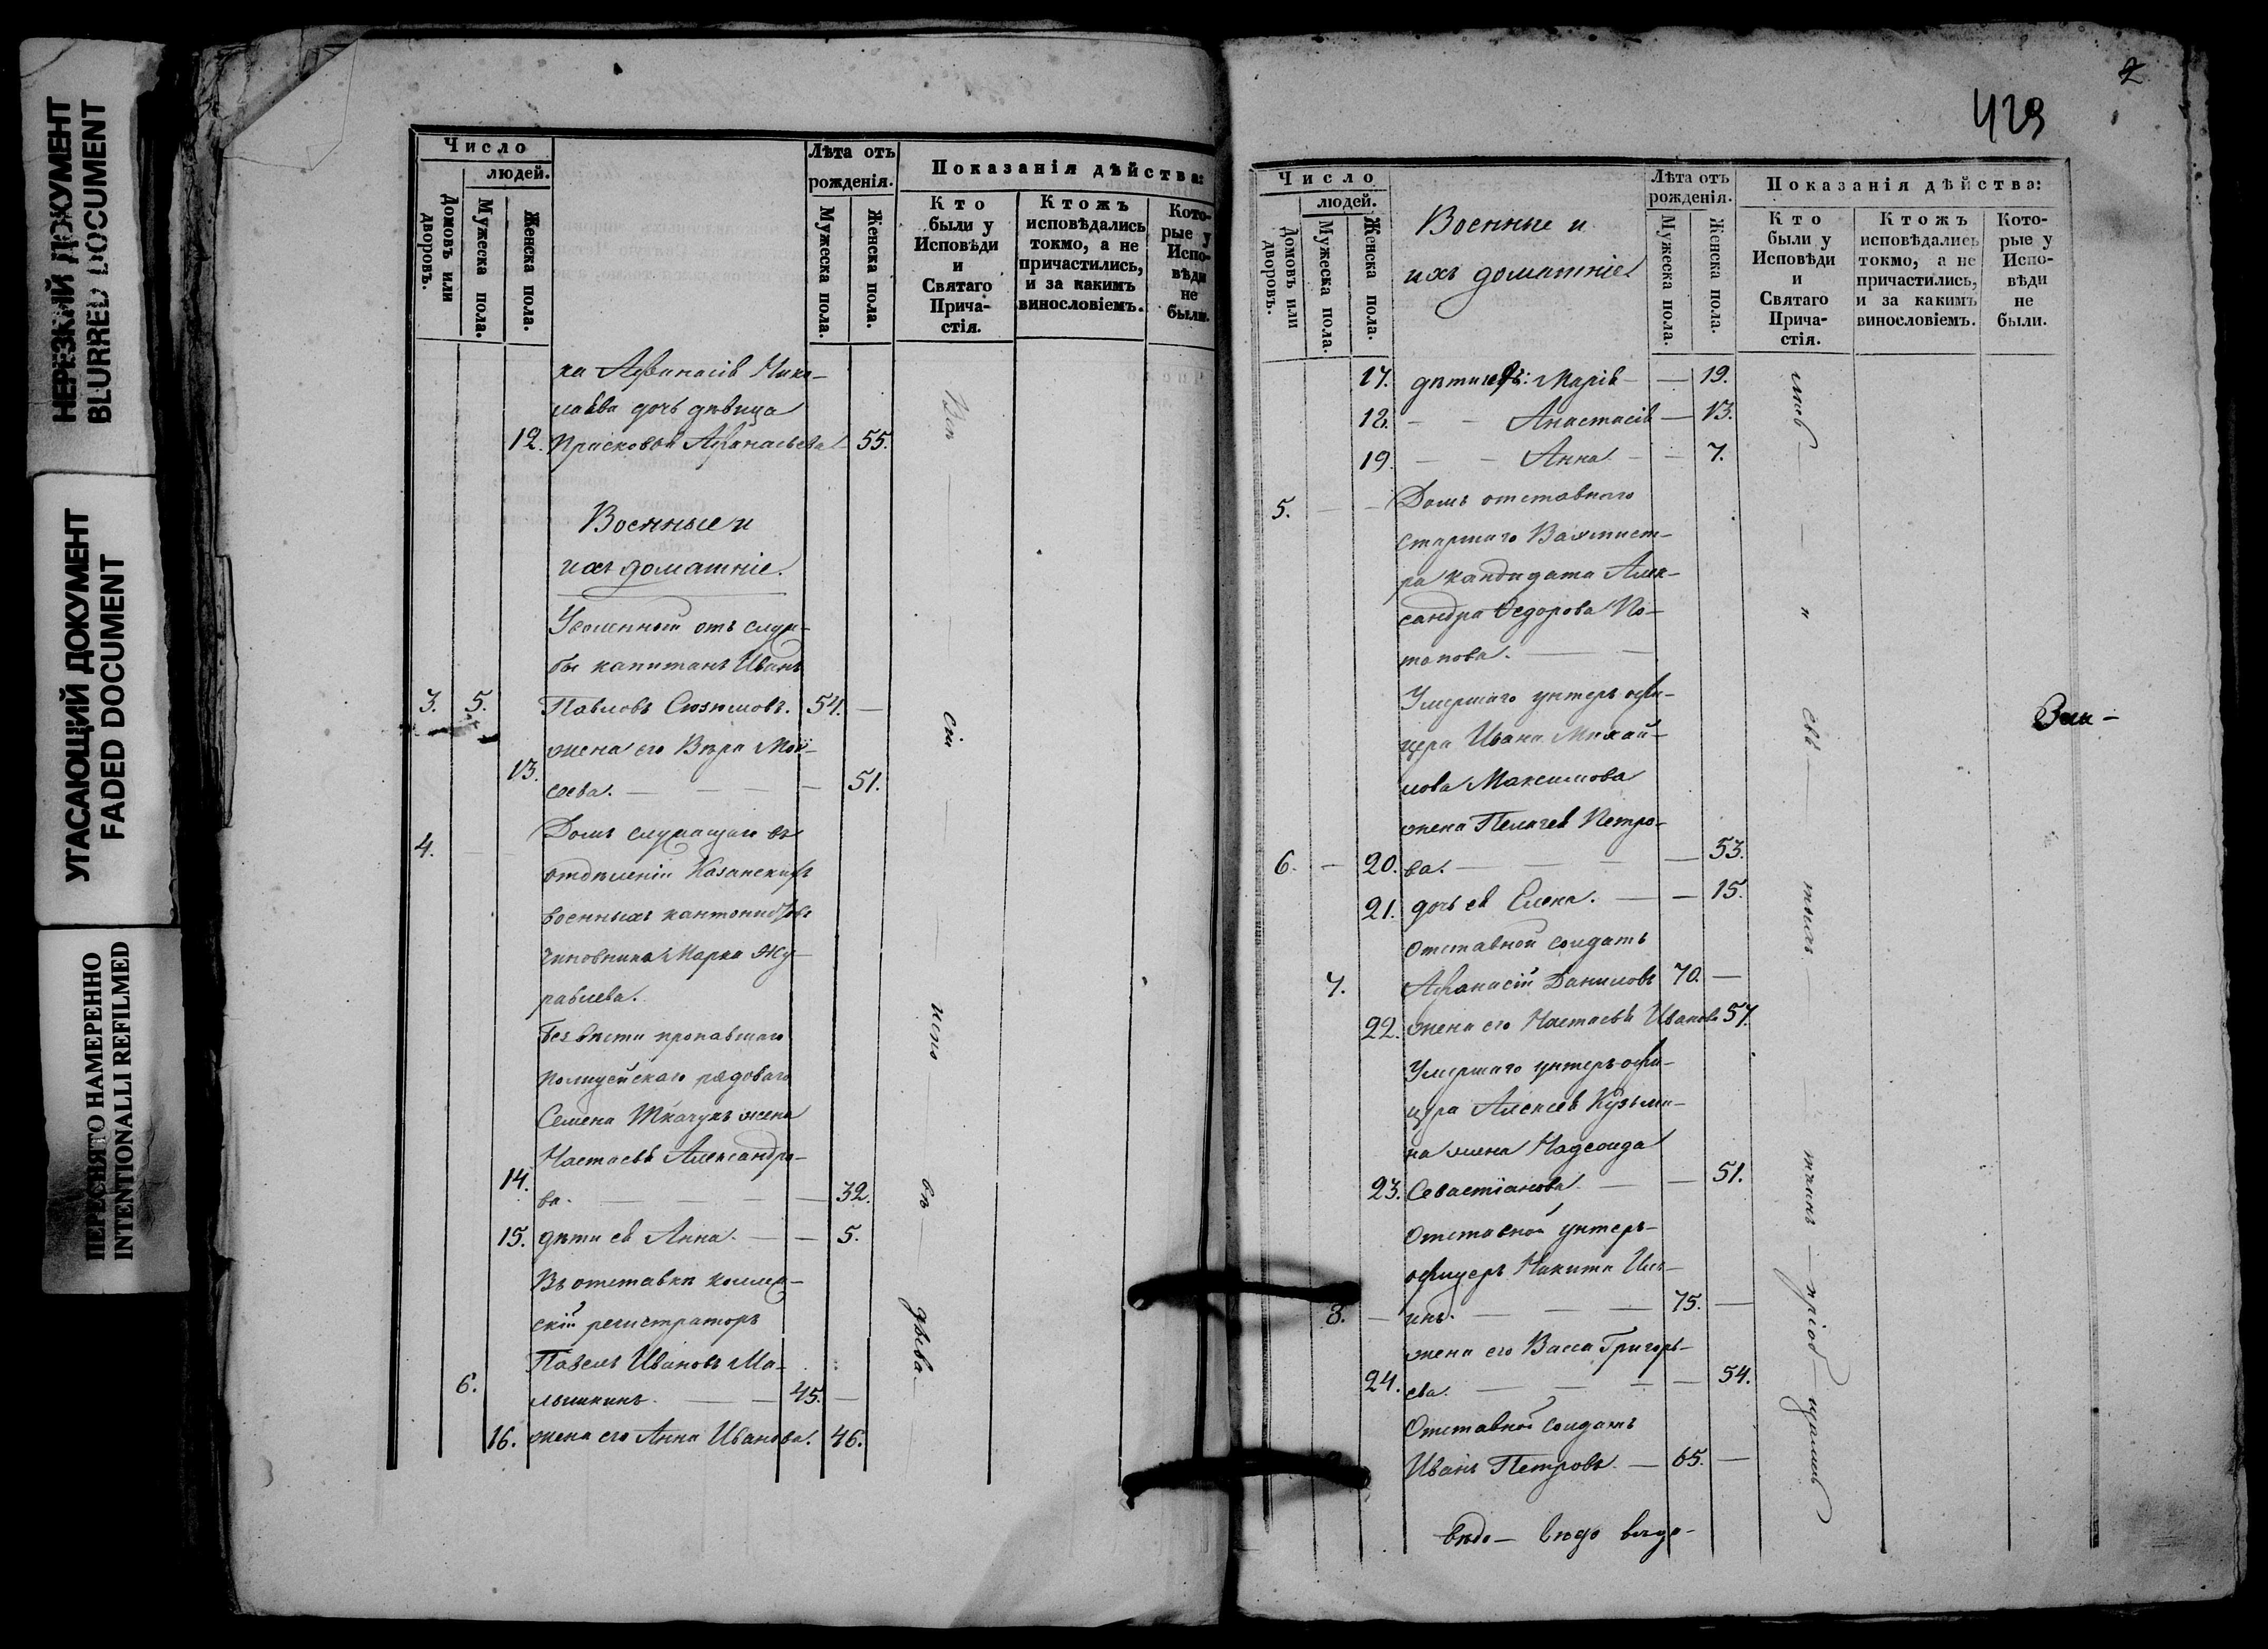 НЕРЕЗКИЙ ДОКУМЕНТ
BLURRED DOCUMENT
УГАСАЮЩИЙ ДОКУМЕНТ
FADED DOCUMENT
ПЕРЕСНЯТО НАМЕРЕННО
INTENTIONALLI REFILMED
Число
людей.
Домовъ или дворовъ.
Мужеска пола.
Женска пола.
Лѣта отъ
рожденія.
Мужеска пола.
Женска пола.
Показанія дѣйства:
Кто
были у
Исповѣди
и
Святаго
Прича-
стія.
Ктожъ
исповѣдались
токмо, а не
причастились,
и за какимъ
винословіемъ.
Кото-
рые у
Испо-
вѣди
не
были.
ка Аѳанасія Нико-
лаева дочь дѣвица
12. Прасковья Аѳанасьева 55.
Военные и
ихъ домашніе.
Уволенный отъ служ-
бы капитанъ Иванъ
3. 5. Павловъ Сюзюмовъ. 54. —
жена его Вѣра Мои-
13. сеева. — — — — 51.
4. Домъ служащаго въ
отдѣленіи Казанскихъ
военныхъ кантонистовъ
чиновника Марка Жу-
равлева.
Безвѣсти пропавшаго
полицейскаго рядоваго
Семена Ткачукъ жена
Настасья Александро-
14. ва. — — — 32.
15. дѣти ея Анна. — — 5.
Въ отставкѣ коллеж-
скій регистраторъ
Павелъ Ивановъ Ма-
6. лышкинъ. — — 45. —
16. жена его Анна Иванова. 46.
2
429
Число
людей.
Домовъ или дворовъ.
Мужеска пола.
Женска пола.
Военные и
ихъ домашніе
Лѣта отъ
рожденія.
Мужеска пола.
Женска пола.
Показанія дѣйства:
Кто
были у
Исповѣди
и
Святаго
Прича-
стія.
Ктожъ
исповѣдались
токмо, а не
причастились,
и за какимъ
винословіемъ.
Кото-
рые у
Испо-
вѣди
не
были.
17. дѣти ихъ: Марія — — 19.
18. — — Анастасія — 13.
19. — — Анна — — 7.
5. — — Домъ отставнаго
старшаго Вахмист-
ра кандидата Алек-
сандра Ѳедорова По-
тапова. — —
Умершаго унтеръ офи-
цера Ивана Михай-
лова Максимова
жена Пелагея Петро-
6. — 20. ва. — — — — 53.
21. дочь ея Елена. — — 15.
Отставной солдатъ
7. Аѳанасій Даниловъ 70. —
22. жена его Настасья Иванова 57.
Умершаго унтеръ-офи-
цера Алексея Кузьми-
на жена Надежда
23. Севастіанова — — 51.
Отставной унтеръ-
офицеръ Никита Иль-
8. — инъ. — — — 75. —
жена его Васса Григорь-
24. ева. — — — — 54.
Отставной солдатъ
Иванъ Петровъ. — 65. —